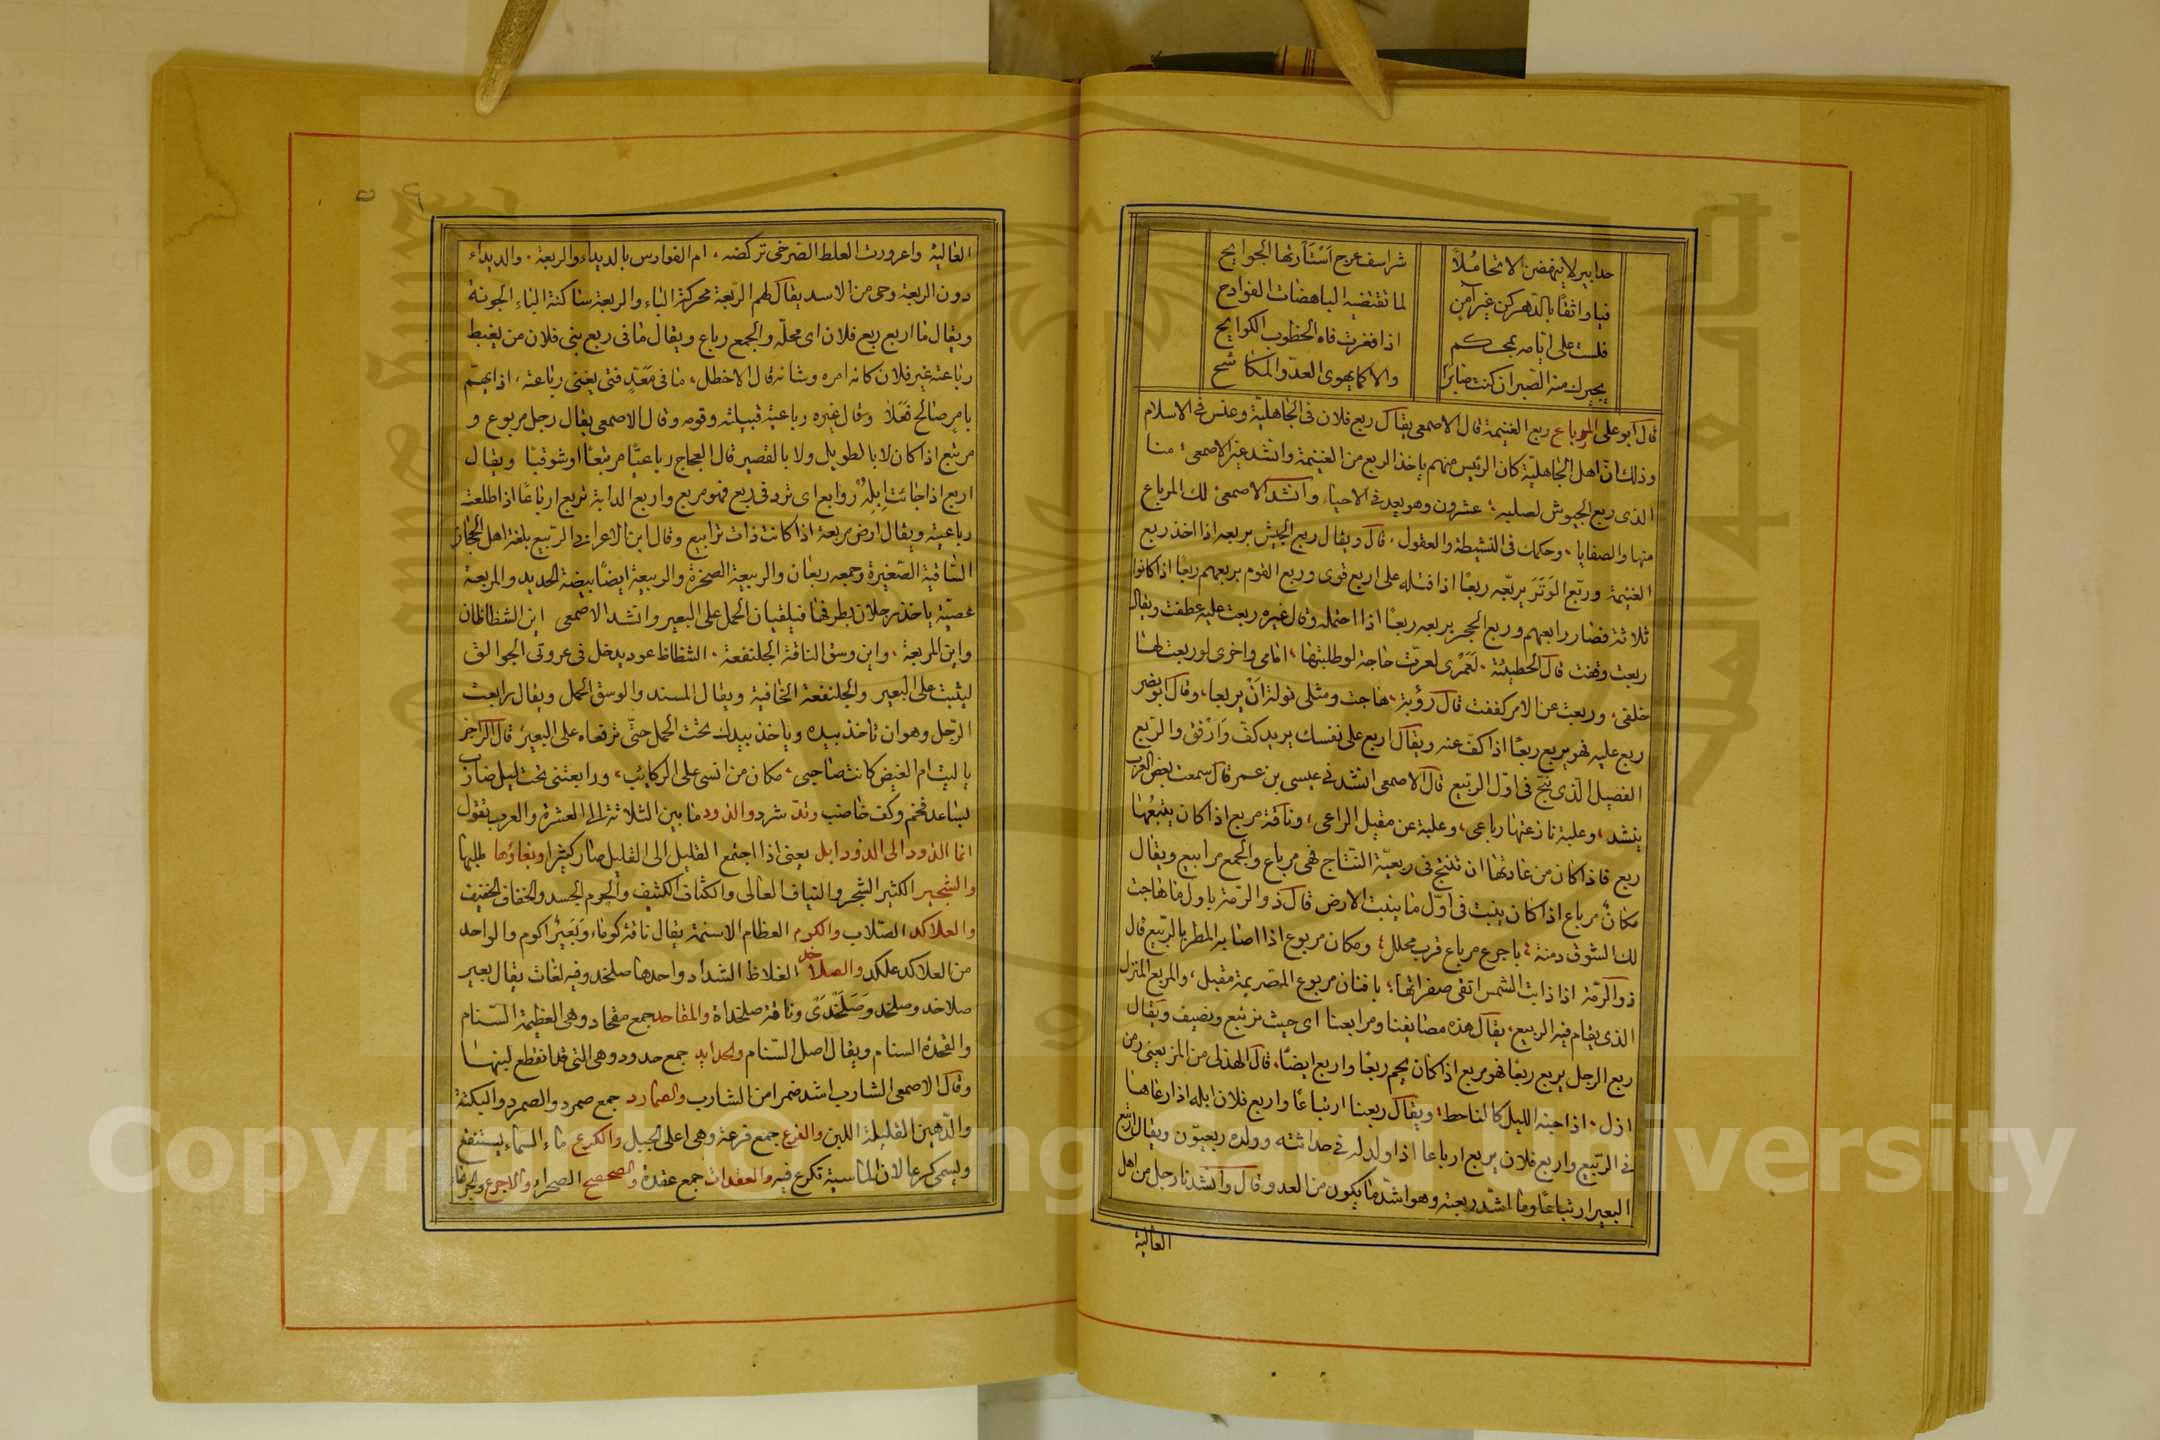 حدابير لا ينهضن الا تحاملاً شراسف عرج استأرتها الجوايح
فيا واثقا بالدهر كن غير آمن لما تقتضيه الباهضات الفوادح
فلست على ايامه بمحكم اذا فغرت فاه الخطوب الكوايح
يجيرك منه الصبر ان كنت صابرا والا كما يهوى العدو المكاشح
قال ابو على المرباع ربع الغنيمة قال الاصمعى يقال ربع فلان فى الجاهلية وعشر فى الاسلام
وذلك ان اهل الجاهلية كان الرئيس منهم ياخذ الربع من الغنيمة وانشد غير الاصمعى منا
الذى ربع الجيوش لصلبه عشرون وهو يعد فى الاحياء وانشد الاصمعى لك المرباع
منها والصفايا وحكمك فى النشيطة والفضول قال ويقال ربع الجيش يربعه اذا اخذ ربع
الغنيمة وربع الوتر يربعه ربعا اذا فتله على اربع قوى وربع القوم يربعهم ربعا اذا كانوا
ثلاثة فصار رابعهم وربع الحجر يربعه ربعا اذا احتمله وقال غيره ربعت عليه عطفت ويقال
ربعت وقفت قال الحطيئة لعمرى لعزت حاجة لو طلبتها امامى واخرى لو ربعت لها
خلفى وربعت عن الامر كففت قال رؤبة هاجت ومثلى نوله ان يربعا وقال ابو نصر
ربع عليه فهو يربع ربعا اذا كف عنه ويقال اربع على نفسك يريد كف وارفق والربع
الفصيل الذى نتج فى اول الربيع قال الاصمعى انشدنى عيسى بن عمر قال سمعت بعض العرب
ينشد وعلبة نازعتها رباعى وعلبة عن مقيل الراعى وناقة مربع اذا كان يتبعها
ربع فاذا كان من عادتها ان تنتج فى ربعية النتاج فهى مرباع والجمع مرابيع ويقال
مكان مرباع اذا كان ينبت فى اول ما ينبت الارض قال ذو الرمة باول ما هاجت
لك الشوق دمنة باجرع مرباع قرب محلل ومكان مربوع اذا اصابه المطر بالربيع قال
ذو الرمة اذا ذابت الشمس اتقى صقراتها بافنان مربوع الصريمة مقبل والمربع المنزل
الذى يقام فيه الربيع يقال هذه مصايفنا ومرابعنا اى حيث نرتبع ونصيف ويقال
ربع الرجل يربع ربعا فهو مربع اذا كان يحم ربعا واربع ايضا قال الهذلى من المربعين ومن
ازل اذا جنه الليل كالناحط ويقال ربعنا ارتباعا واربع فلان ابله اذا رعاها
فى الربيع واربع فلان يربع ارباعا اذا ولد له فى حداثته وولده ربعيون ويقال ارتبع
البعير ارتباعا وما اشد ربعته وهو اشد ما يكون من العدو قال وانشدنا رجل من اهل
العالية
العالية واعرورت العلط العرضى تركضه ام الفوارس بالديداء والربعة والديداء
دون الربعة وحى من الاسد يقال لهم الربعة محركة الباء والربعة ساكنة الباء الجونة
ويقال ما اربع ربع فلان اى محله والجمع رباع ويقال ما فى ربع بنى فلان من يضبط
رباعته غير فلان كانه امره وشانه قال الاخطل ما فى معد فتى يغنى رباعته اذا يهم
بامر صالح فعلا وقال غيره رباعته قبيلته وقومه وقال الاصمعى يقال رجل مربوع و
مرتبع اذا كان لا بالطويل ولا بالقصير قال العجاج رباعيا مرتبعا او شوقبا ويقال
اربع اذا جائت ابله روابع اى ترد فى ربع فهو مربع واربع الدابة تربع ارباعا اذا طلعت
رباعيته ويقال ارض مربعة اذا كانت ذات ترابيع وقال ابن الاعرابى الربيع بلغة اهل الحجاز
الساقية الصغيرة وجمعه ربعان والربيعة الصخرة والربيعة ايضا بيضة الحديد والمربعة
عصية ياخذ رجلان بطرفها فيلقيان الحمل على البعير وانشد الاصمعى اين الشظاظان
واين المربعة واين وسق الناقة الجلنفعة الشظاظ عود يدخل فى عروتى الجوالق
ليثبت على البعير والجلنفعة الجافية ويقال المسنة والوسق الحمل ويقال رابعت
الرجل وهو ان تاخذ بيده وياخذ بيدك تحت الحمل حتى ترفعاه على البعير قال الراجز
يا ليت ام الغيض كانت صاحبى مكان من انسى على الركايب ورابعتنى تحت ليل ضارب
بساعد فخم وكف خاضب وند شرد والذود ما بين الثلاثة الى العشرة والعرب تقول
انما الذود الى الذود ابل يعنى اذا اجتمع القليل الى القليل صار كثيرا وبغاؤها طلبها
والشجير الكثير الشجر والنياف العالى والكثاف الكثيف والجرم الجسد والخفاف الخفيف
والعلاكد الصلاب والكوم العظام الاسنمة يقال ناقة كوماء وبعير اكوم والواحد
من العلاكد علكد والصلاخد الغلاظ الشداد واحدها صلخد وفيه لغات يقال بعير
صلاخد وصلخد وصلخدى وناقة صلخداة والمقاحد جمع مقحاد وهى العظيمة السنام
والقحدة السنام ويقال اصل السنام والحدابد جمع حدود وهى التى قد انقطع لبنها
وقال الاصمعى الشارب اشد ضمرا من الشارب والصمارد جمع صمرد والصمرد والبكئة
والدهين القليلة اللبن والفرع جمع فرعة وهى اعلى الجبل والكرع ماء السماء يستنقع
ويسمى كرعا لان الماشية تكرع فيه والعقدات جمع عقدة والصحصح الصحراء والاجرع والجرعاء
Copyright © King Saud University